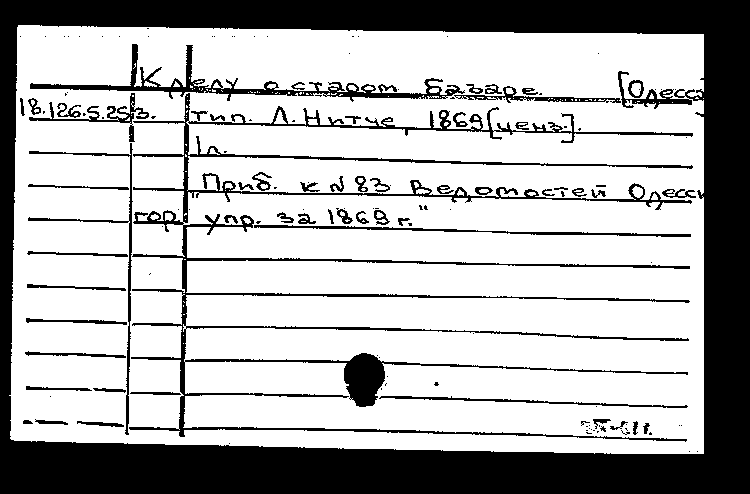 К делу о старом базаре. [Одесса
18.126.5.253. тип. Л. Нитче, 1869 [ценз.].
1 л.
"Приб. к №83 Ведомостей Одесск
гор. упр. за 1869 г."